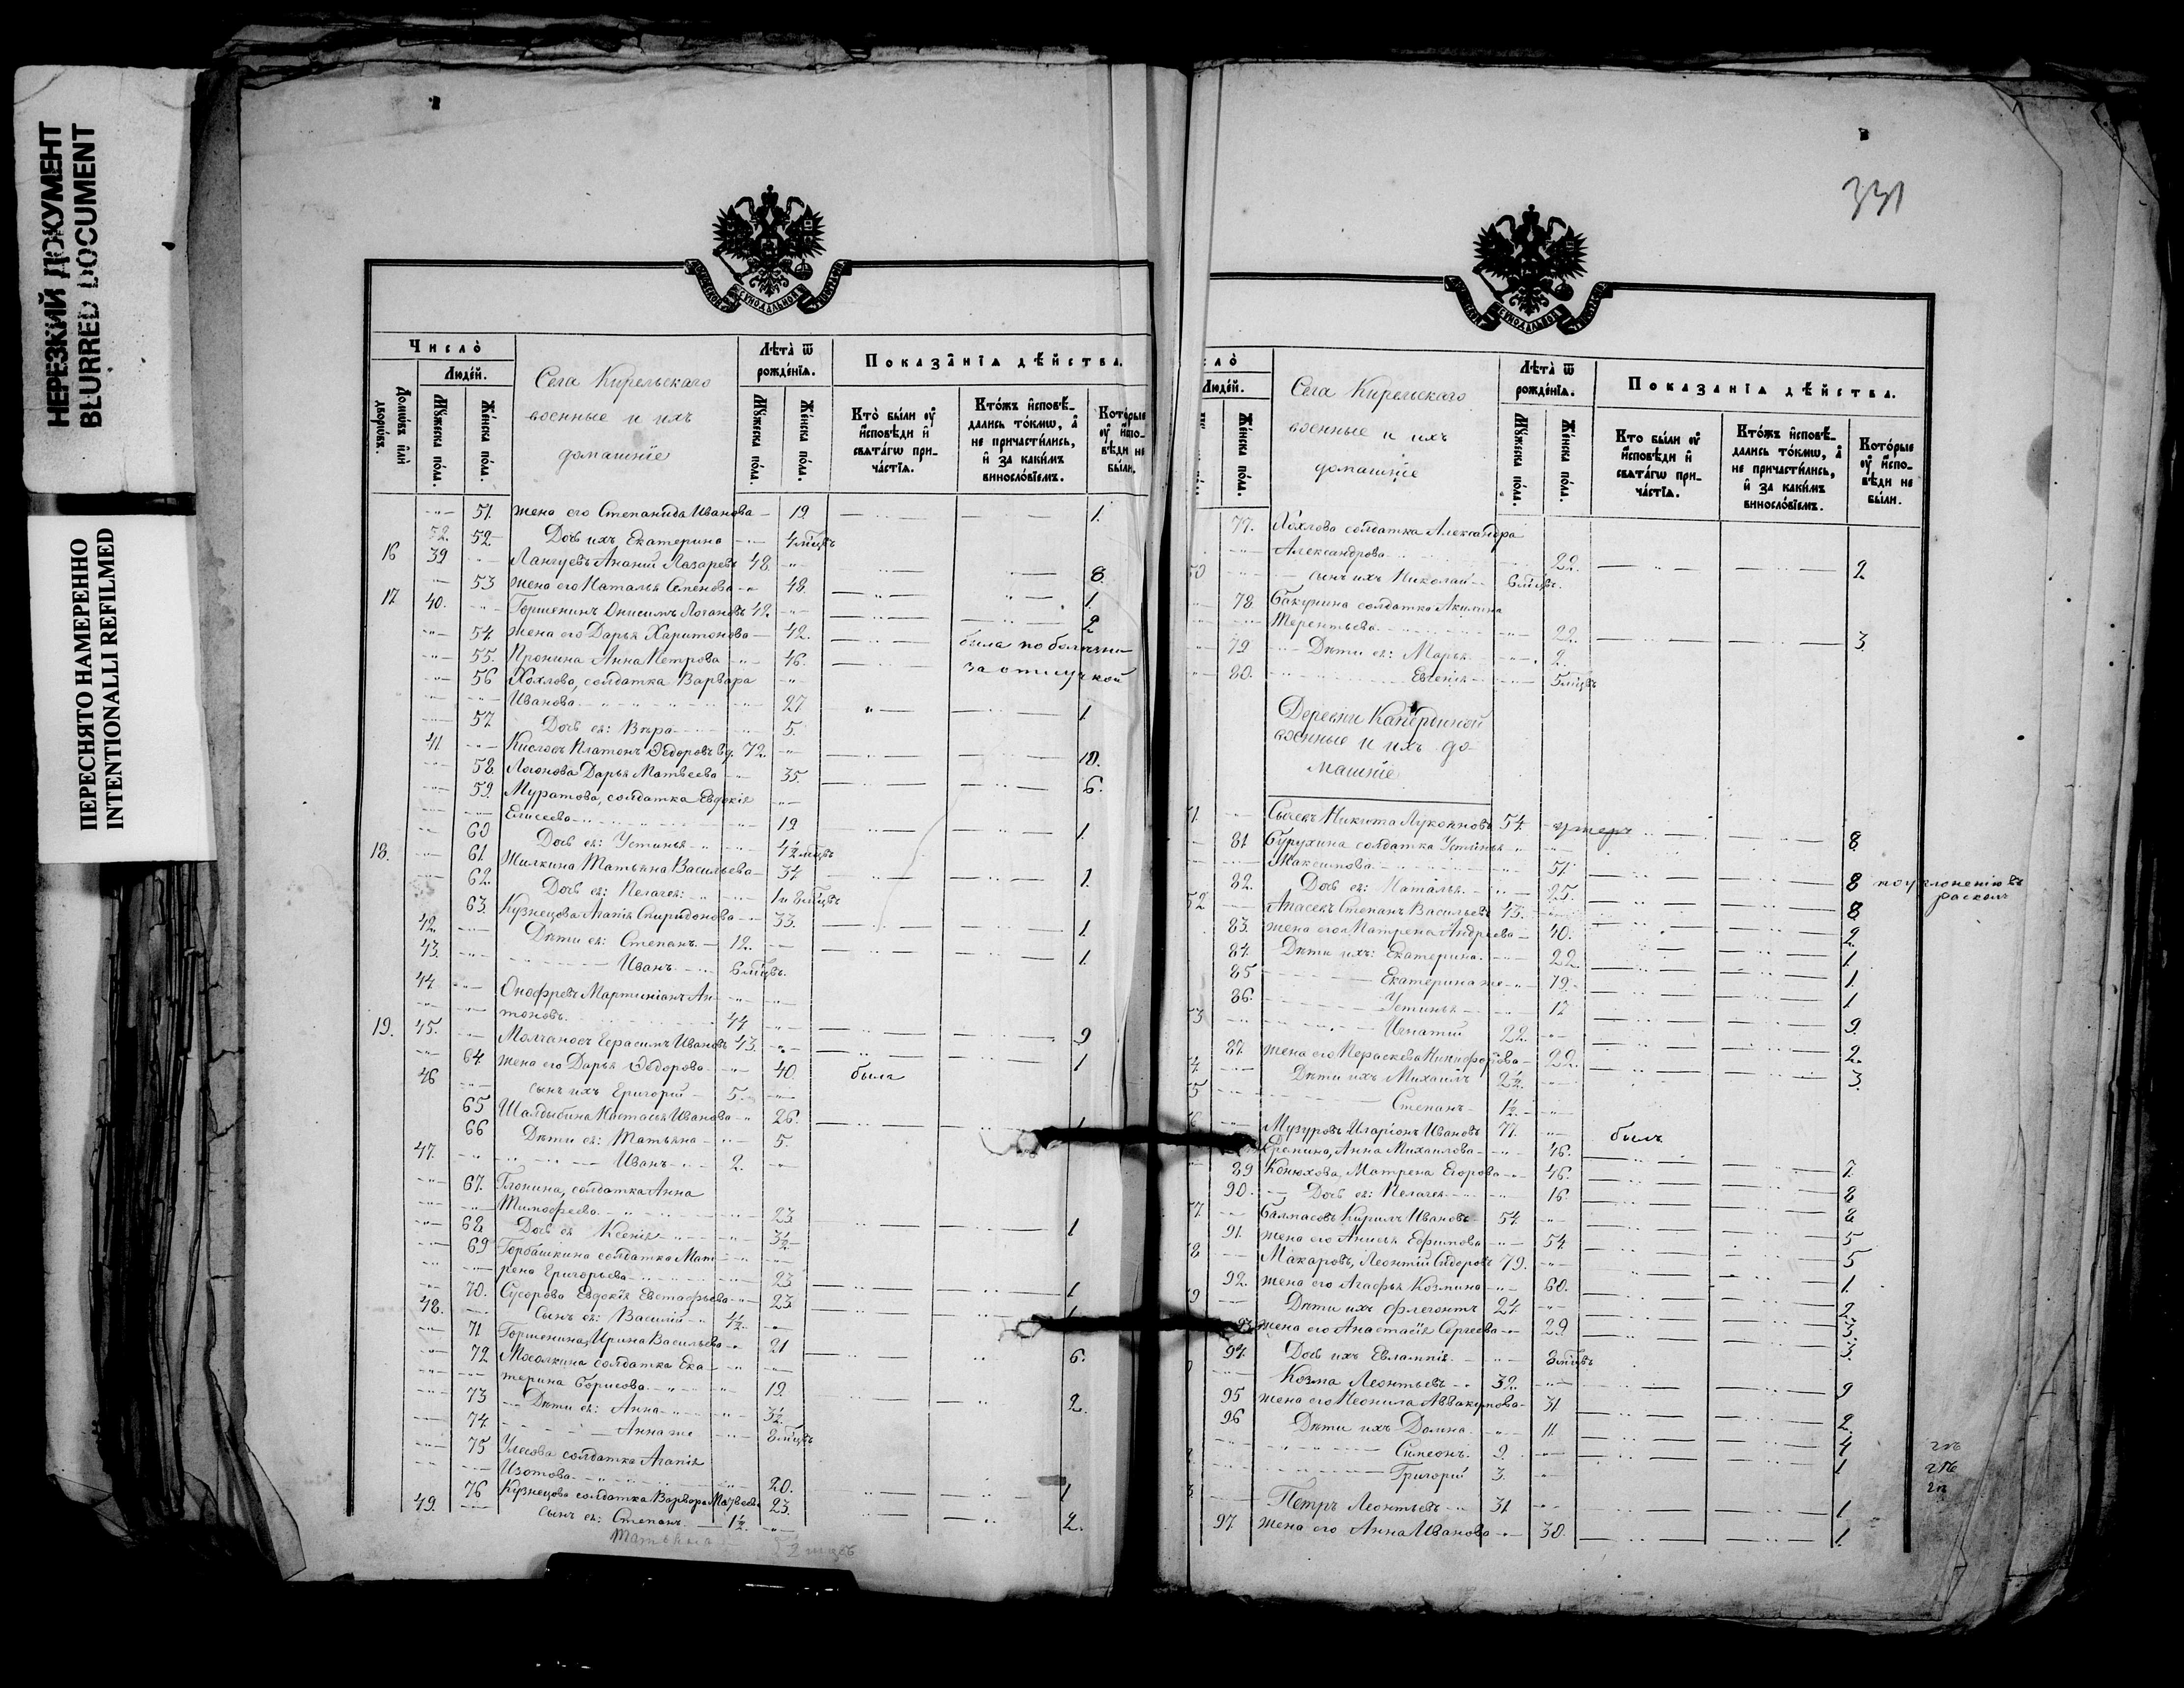 НЕРЕЗКИЙ ДОКУМЕНТ
BLURRED DOCUMENT
ПЕРЕСНЯТО НАМЕРЕННО
INTENTIONALLI REFILMED
Число̀
Людей.
Домѡвъ или дворѡвъ.
Мꙋжеска пола.
Женска пола.
Села Кирельскаго
военные и ихъ
домашніе
Лѣта ѿ рожденїѧ.
Мꙋжеска пола.
Женска пола.
Показанїѧ дѣйства.
Кто были оу исповѣди и свѧтагѡ причастїѧ.
Ктожъ исповѣдались токмѡ, а не причастились, и за какимъ винословїемъ.
Которые оу исповѣди не были.
51. жена его Степанида Иванова 19. 1.
52. 52. Дочь ихъ Екатерина 4 мѣцвъ
16 39 Лангуевъ Ананій Лазаревъ 48. 8.
53 жена его Наталья Семенова 48. 1.
17 40. Горшенинъ Онисимъ Логановъ 42. 2
54. жена его Дарья Харитонова 42. была по болѣзни
55. Пронина Анна Петрова 46. за отлучкой
56 Хохлова, солдатка Варвара
Иванова 27 1
57. Дочь ея: Вѣра 5.
41 Кислевъ Платонъ Ѳедоровъ вд. 72. 10.
58. Логонова Дарья Матвеева 35. 6.
59. Муратова, солдатка Евдокія
Елисеева 19 1.
60 Дочь ея: Устинья 4½ мѣцвъ
18. 61 Жилкина Татьяна Васильева 34 1.
62. Дочь ея: Пелагея 1 и 8 мѣцвъ
63. Кузнецова Агапія Спиридонова 33. 1
42. Дѣти ея: Степанъ 12. 1.
43. Иванъ 6 мѣцвъ.
44 Онофревъ Мартиніанъ Ан-
тоновъ 44 9
19. 45. Молчановъ Герасимъ Ивановъ 43. 1
64. жена его Дарья Ѳедорова 40. была
46 сынъ ихъ Григорій 5.
65 Шалдыбина Настасья Иванова 26. 1
66 Дѣти ея: Татьяна 5.
47. Иванъ 2.
67. Глонина, солдатка Анна
Тимофеева 23. 1
68. Дочь ея Ксенія 3½
69 Горбашкина солдатка Мат-
рена Григорьева 23 1
70. Суворова Евдокія Евстафьева 23. 1
48. Сынъ ея: Василій 4½
71 Горшенина, Ирина Васильева 21 6.
72 Мосолкина солдатка Ека-
терина Борисова 19. 2.
73 Дѣти ея: Анна 3½
74. Анна же 8 мѣцвъ
75 Улесова солдатка Агапія
Изотова 20. 1
76 Кузнецова солдатка Варвара Матвеева 23. 2.
49. сынъ ея: Степанъ 1½
Татьяна 2 мѣцвъ
331
Людей.
Женска пола.
Села Кирельскаго
военные и ихъ
домашніе
Лѣта ѿ рожденїѧ.
Мꙋжеска пола.
Женска пола.
Показанїѧ дѣйства.
Кто были оу исповѣди и свѧтагѡ причастїѧ.
Ктожъ исповѣдались токмѡ, а не причастились, и за какимъ винословїемъ.
Которые оу исповѣди не были.
77. Лохлова солдатка Александра
Александрова 22. 2
50 сынъ ихъ Николай 6 мѣцвъ.
78 Бакунина солдатка Акилина
Терентьева 22. 3.
79 Дѣти ея: Марья 2.
80. Евгенія 5 мѣцвъ
Деревни
военные и ихъ до-
машніе
51. Сычевъ Никита Лукояновъ 54. умеръ 8.
81 Бурухина солдатка Устинья
Максимова 51. 8 по уклоненію въ
82. Дочь ея: Наталья 25. 8 расколъ
52 Апасевъ Степанъ Васильевъ 43. 2
83. жена его Матрена Андреева 40. 1
84. Дѣти ихъ: Екатерина 22 1.
85 Екатерина же 19. 1
86. Устинья 17 9.
53 Игнатій 22. 2.
87. жена его Параскева Никифорова 22. 3.
Дѣти ихъ Михаилъ 2½
55 Степанъ 1½
Музуровъ Иларіонъ Ивановъ 77. былъ
Еранина, Анна Михаилова 46. 7.
89 Конюхова, Матрена Егорова 46. 8
90. Дочь ея: Пелагея 16 8
57. Балтасовъ Кирилъ Ивановъ 54. 5
91. жена его Анисья Ефимова 54. 5
58 Макаровъ, Леонтій Сидоровъ 79. 1.
92. жена его Агафья Козмина 60. 2.
59 Дѣти ихъ Флегонтъ 24. 3.
93 жена его Анастасія Сергеева 29. 3.
94. Дочь ихъ Евлампія 8 мѣцвъ
Козма Леонтьевъ 32. 9
95 жена его Неонила Аввакумова 31. 2.
96 Дѣти ихъ Домна 11. 4
Симеонъ 9. 1
Григорій 3.
Петръ Леонтьевъ 31 1
97. жена его Анна Иванова 30. 1.